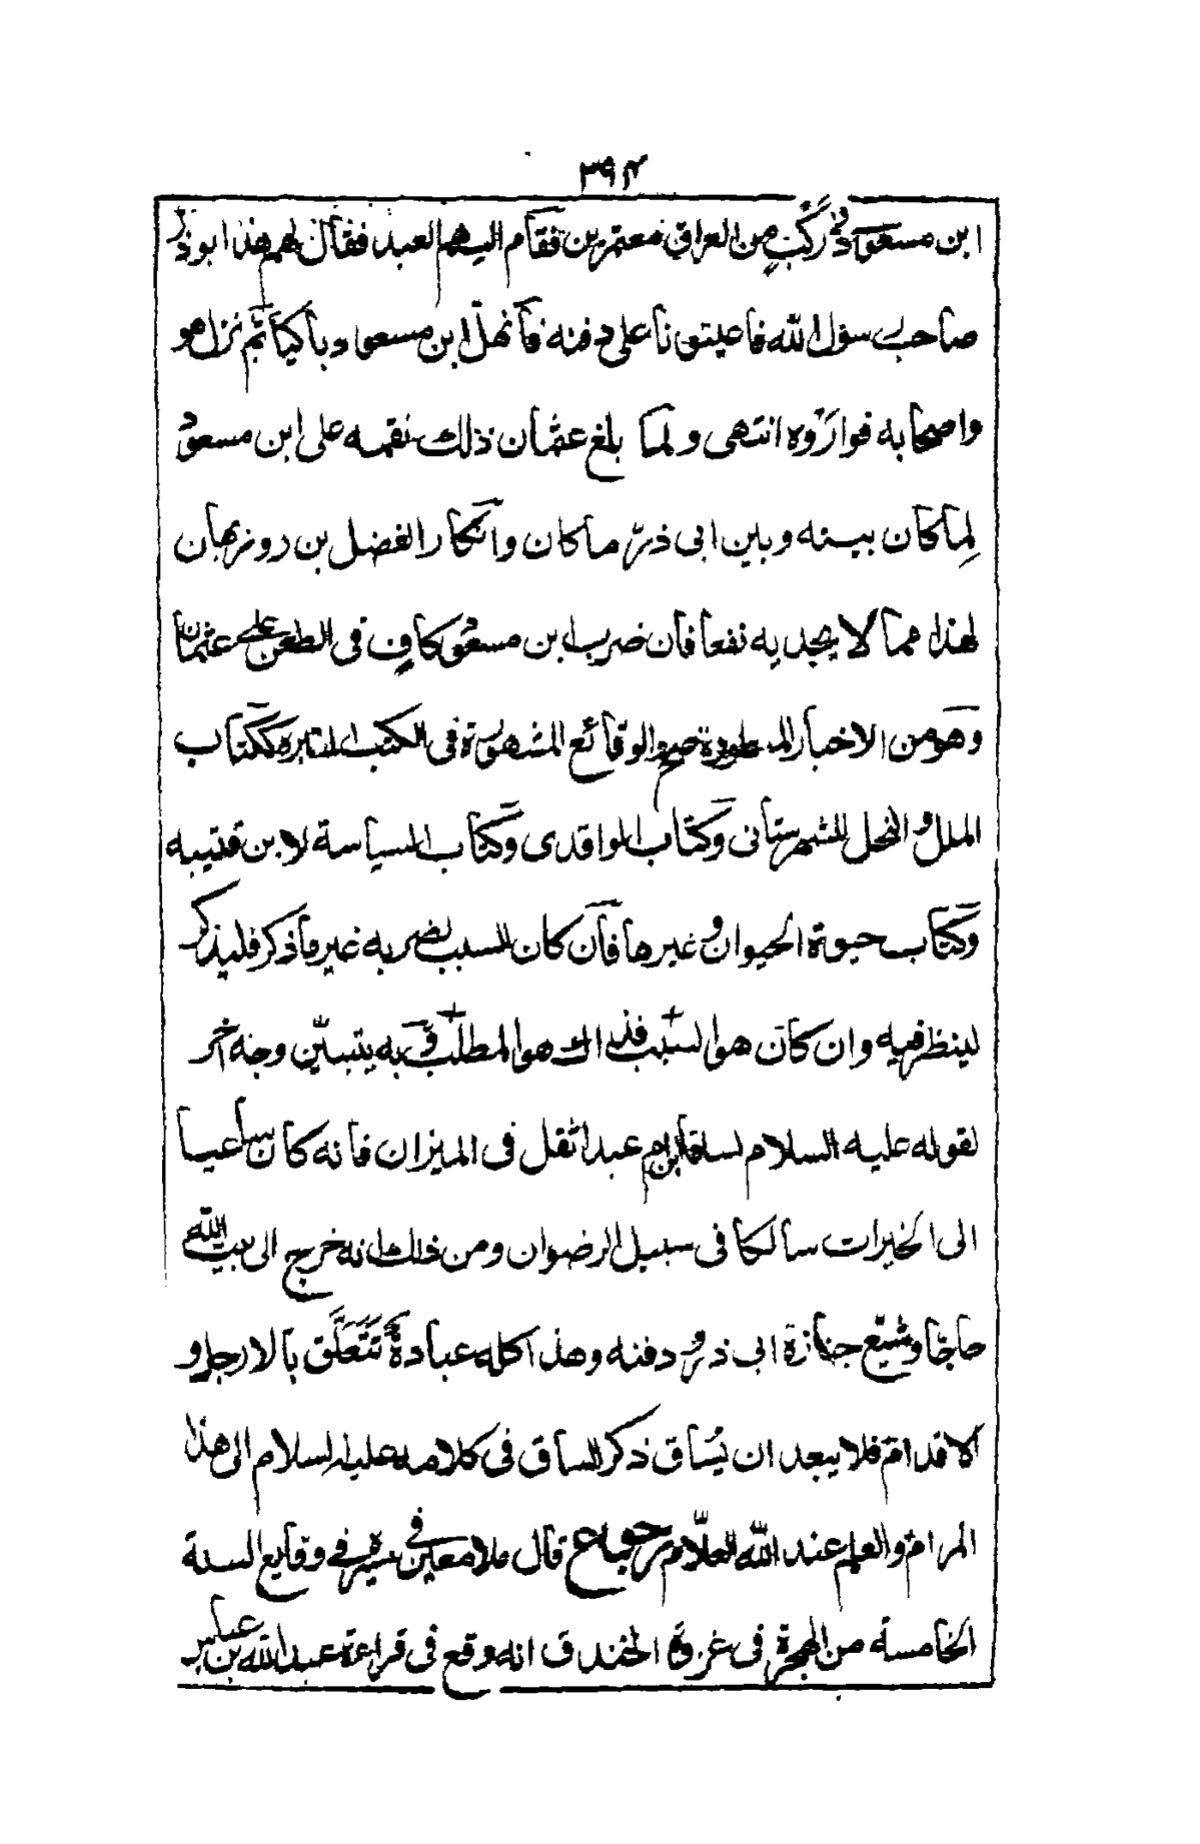 ٣٩٤
ابن مسعود في ركب من العراق معتمرين فقام اليهم العبد فقال لهم هذا ابوذر
صاحب رسول الله فاعينونا على دفنه فانهل ابن مسعود باكيا ثم نزل هو
واصحابه فوارَوه انتهى ولما بلغ عثمان ذلك نقمه على ابن مسعود
لما كان بينه وبين ابى ذرّ ما كان وانكار الفضل بن روزبهان
لهذا مما لا يجديه نفعا فان ضرب ابن مسعود كافٍ فى الطعن على عثمان
وهو من الاخبار والوقائع المشهورة فى الكتب ككتاب
الملل والنحل للشهرستانى وكتاب الواقدى وكتاب السياسة لابن قتيبه
وكتاب حيوة الحيوان وغيرها فان كان السبب لضربه غير ما ذكر فليذكر
لينظر فيه وان كان هو السبب فذاك هو المطلب وبه يتبيّن وجه اخر
لقوله عليه السلام لساقا ابن ام عبد اثقل فى الميزان فانه كان ساعيا
الى الخيرات سالكا فى سبيل الرضوان ومن ذلك انه خرج الى بيت الله
حاجّا وشيّع جنازة ابى ذر ودفنه وهذا كله عبادةٌ تتعلّق بالارجل و
الاقدام فلا يبعد ان يُساق ذكر الساق فى كلامه عليه السلام الى هذا
المرام والعلم عند الله العلّام رجوع قال ملا معين فى سيره في وقايع السنة
الخامسة من الهجرة فى غزوة الخندق انه وقع فى قراءة عبد الله بن عباس